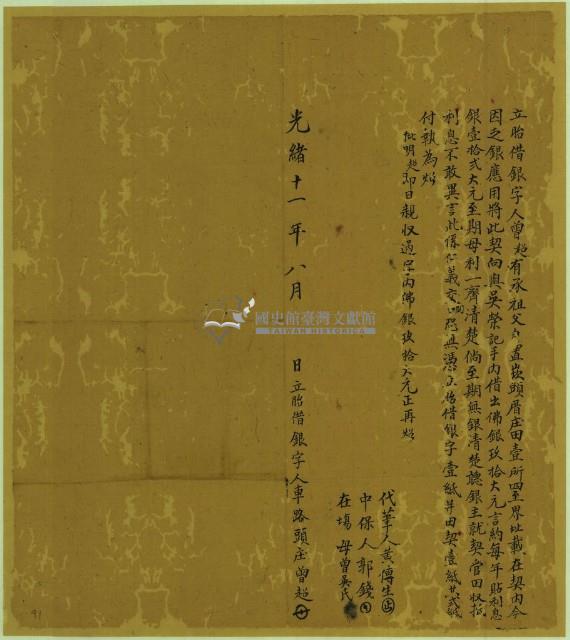 立胎借銀字人曾超有承祖父自置崁頭厝庄田壹所四至界址載在契內今
因乏銀應用將此契向與吳榮記手內借出佛銀玖拾大元言約每年貼利息
銀壹拾弍大元至期母利一齊清楚倘至期無銀清楚聽銀主就契管田收抵
利息不敢異言此係仁義交關恐口無憑立胎借銀字壹紙并田契壹紙共弍紙
付執為炤
批明超即日親收過字內佛銀玖拾大元正再炤
代筆人黃傳生
中保人郭錢
在塲母曾吳氏
光緒十一年八月 日立胎借銀字人車路頭庄曾超
國史館臺灣文獻館
TAIWAN HISTORICA
91